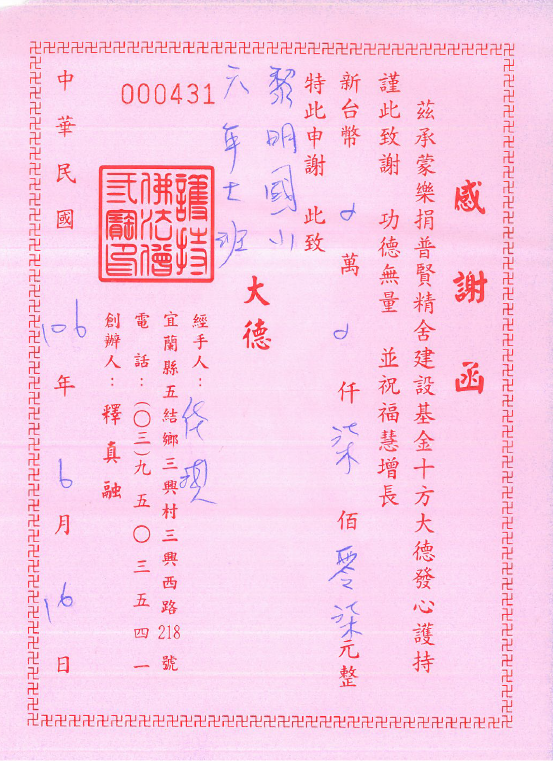 感謝函
茲承蒙樂捐普賢精舍建設基金十方大德發心護持
謹此致謝 功德無量 並祝福慧增長
新台幣 0 萬 0 仟 柒 佰 零柒元整
特此申謝 此致
黎明國小
六年七班
大德
000431
護持佛法僧三寶印
經手人：
宜蘭縣五結鄉三興村三興西路218號
電話：(〇三)九五〇三五四一
創辦人：釋真融
中華民國 106 年 6 月 16 日